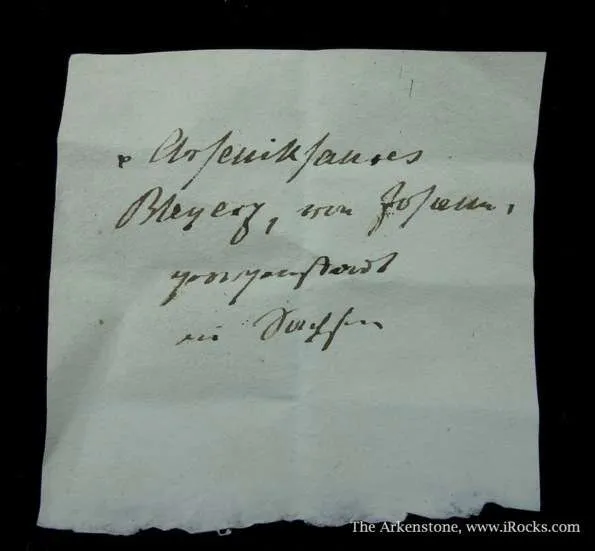 Arseniksaures
Bleyerz, von Johann,
georgenstadt
in Sachsen
The Arkenstone, www.iRocks.com